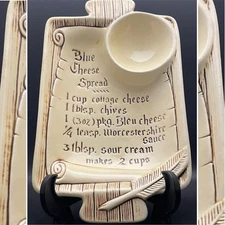 Blue
Cheese
Spread
1 cup cottage cheese
1 tblsp. chives
1 (3oz) pkg. Bleu cheese
1/4 teasp. Worcestershire
sauce
3 tblsp. sour cream
makes 2 cups